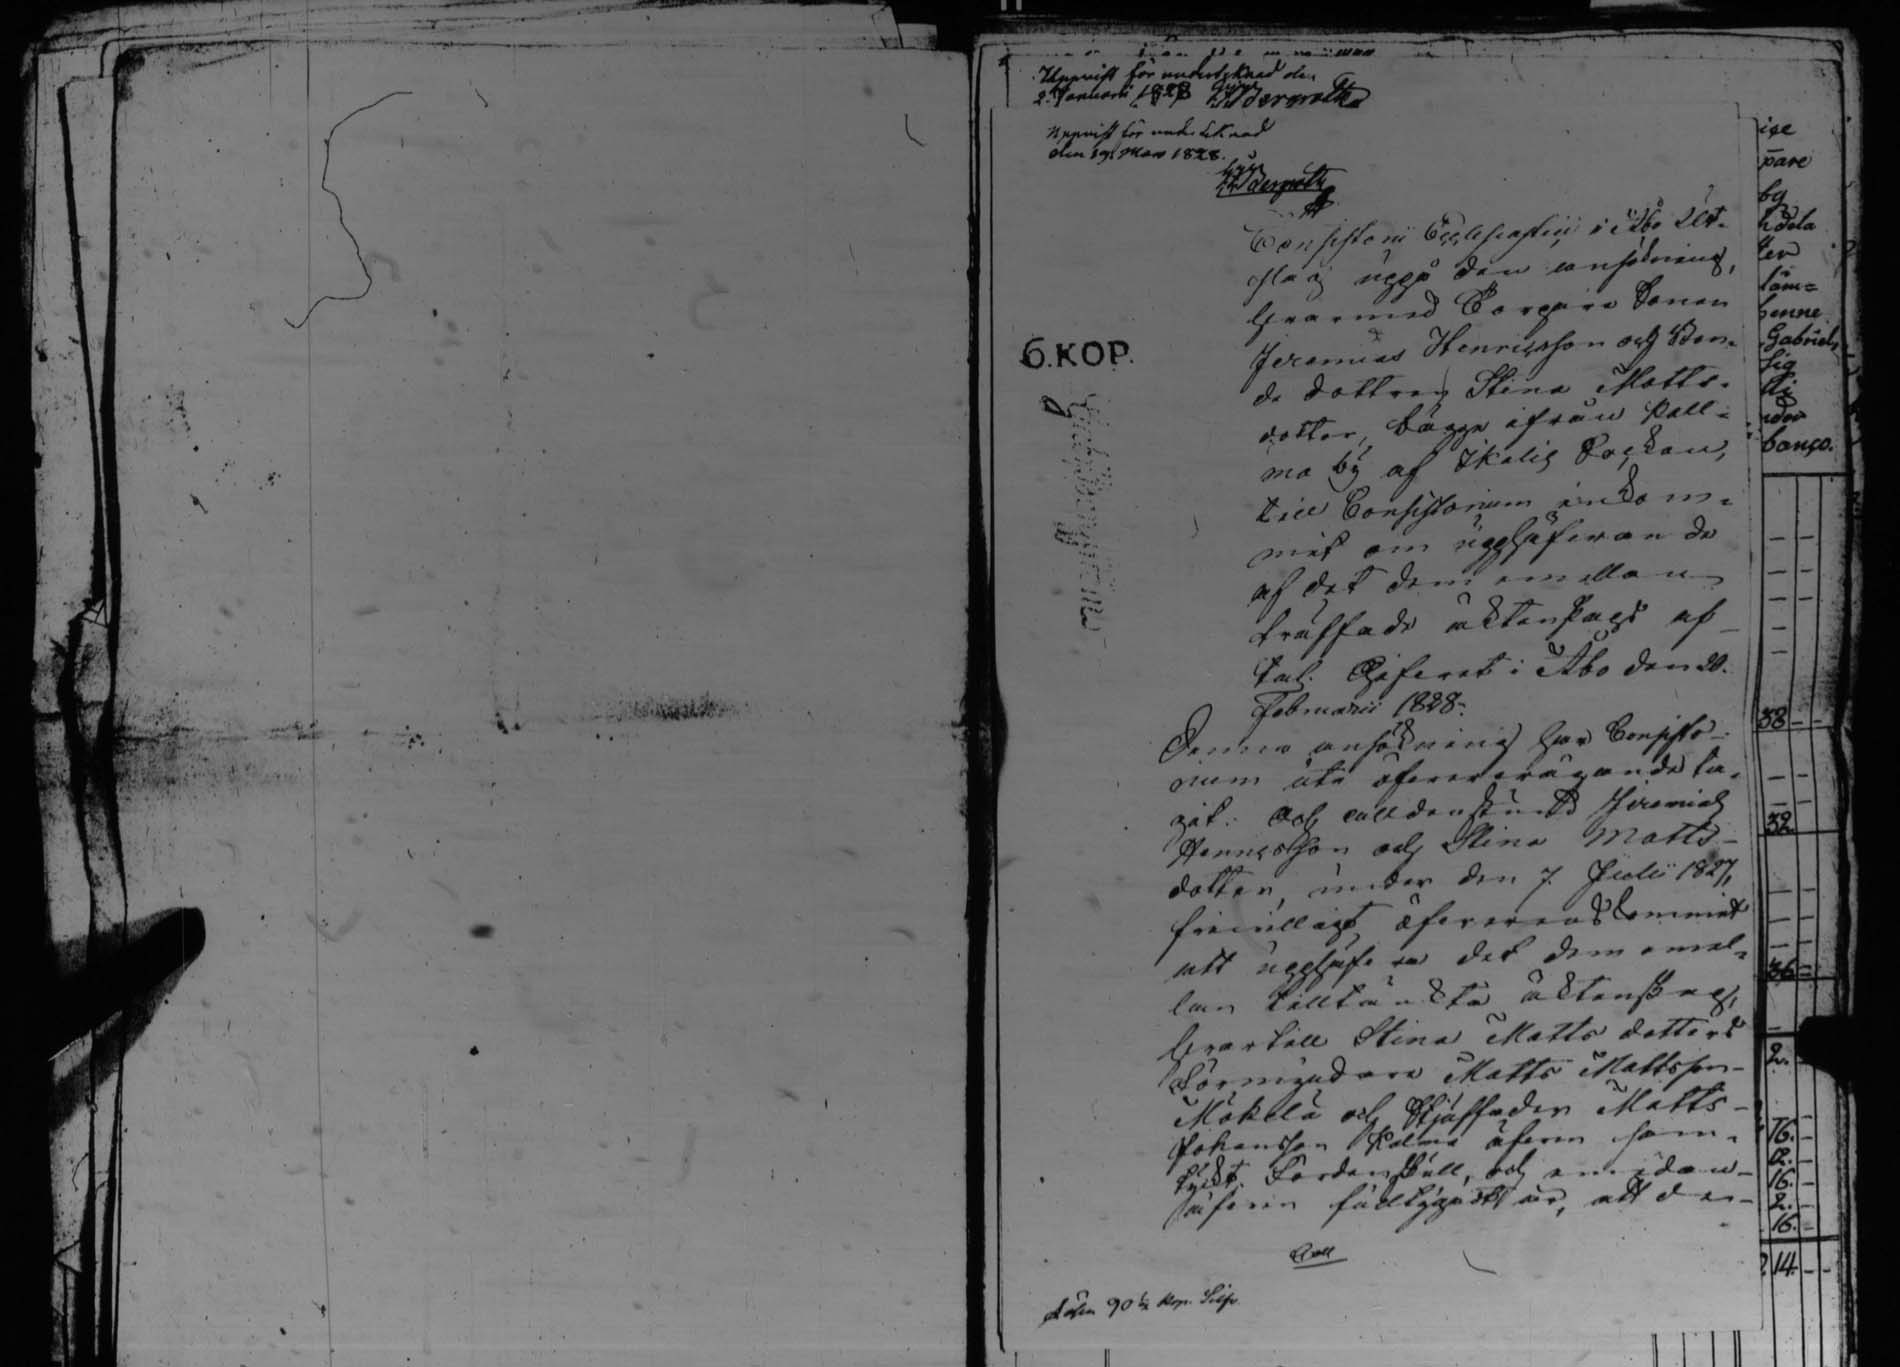 Uppvist för underteknad den
2. Januarii 1828
Uppvist för underteknad
den 19. Mars 1828.
6.KOP.
Consistorii Ecclesiastici i Åbo Ut-
slag uppå den ansökning,
hvarmed Torpare Sonen
Jeremias Henricsson och Bon-
de dottren Stina Matts-
dotter, bägge ifrån Kall-
ma by af Ikalis Socken,
till Consistorium inkom-
mit om upphäfvande
af det dem emellan
träffade äktenskaps af-
tal. Gifvet i Åbo den 20.
Februarii 1828.
Denna ansökning har Consisto-
rium uti öfvervägande ta-
git: Och alldenstund Jeremias
Henricsson och Stina Matts-
dotter, under den 7. Julii 1827,
frivilligt öfverenskommit
att upphäfva det dem emel-
lan tilltänkta äktenskap,
hvartill Stina Matts dotters
Förmyndare Matts Mattsson
Mäkelä och Stjuffader Matts
Johansson Kalma äfven sam-
tyckt. Fordenskull, och emedan
äfven fullygadt är, att den
Lösen 90½ kop. Silfv.
ige
pare
by
ter
henne
Gabriels
sig
banco.
38
32
36
2.
16.
12.
16.
2.
16.
14